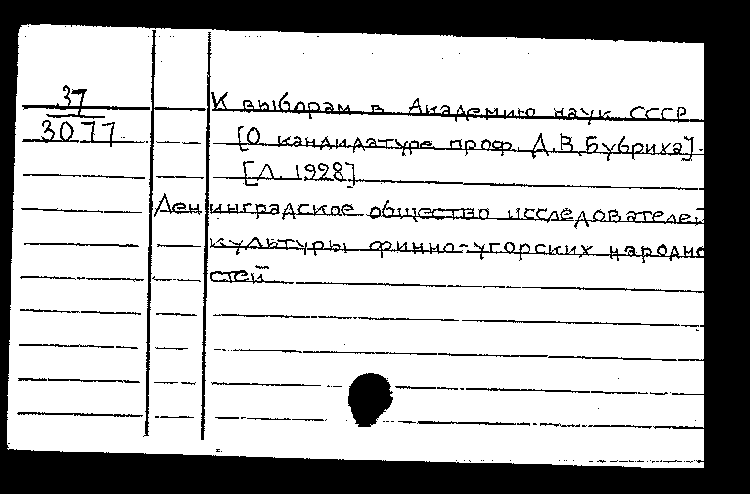 37
3077
К выборам в Академию наук СССР
[О кандидатуре проф. Д.В.Бубриха].
[Л. 1928]
Ленинградское общество исследователей
культуры финно-угорских народно
стей